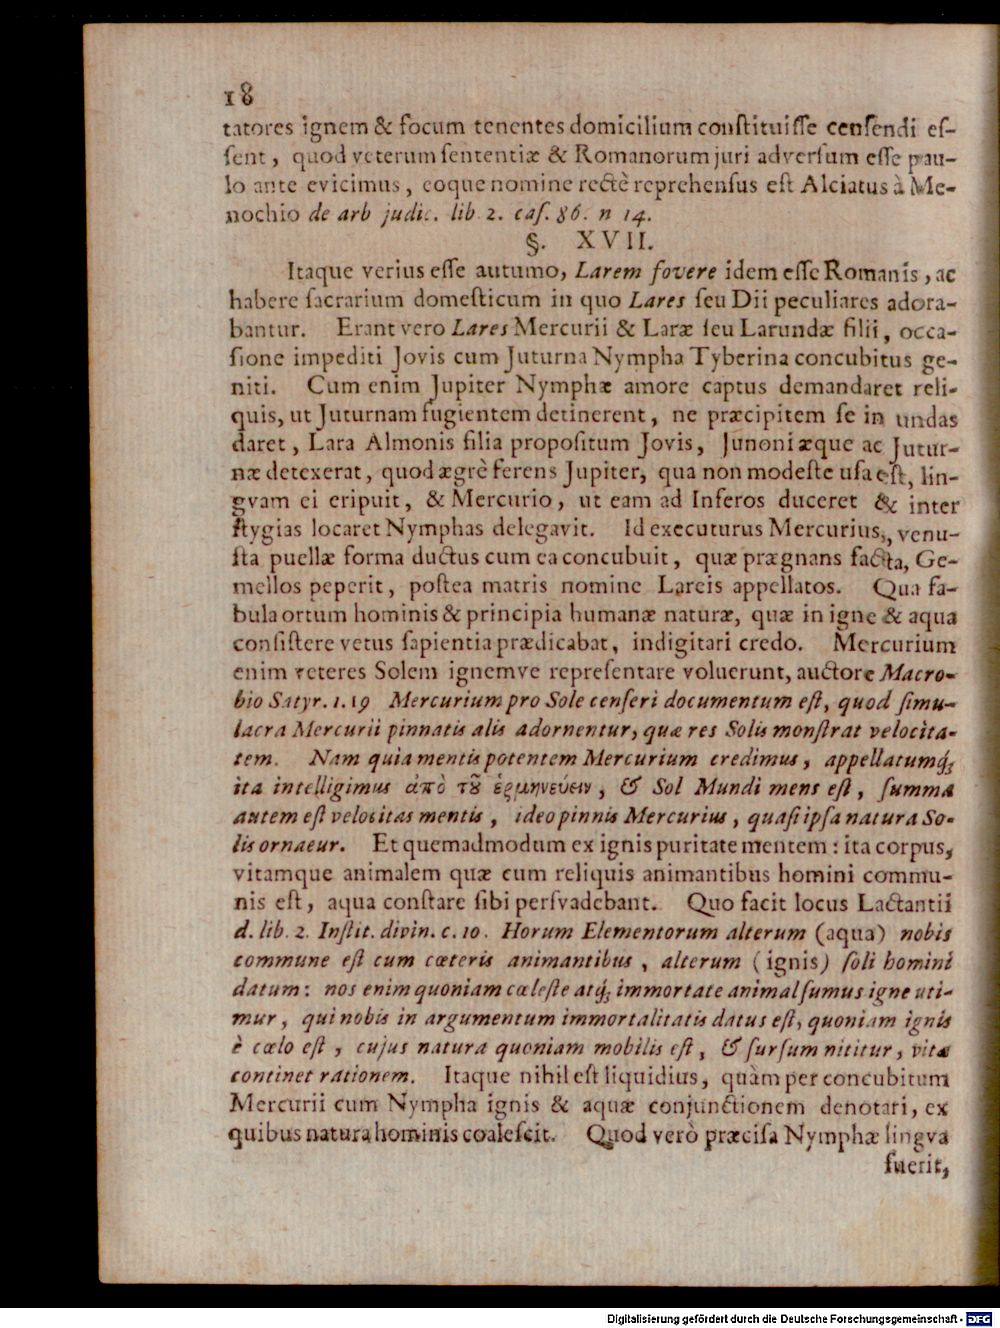 18
tatores ignem & focum tenentes domicilium conſtituiſſe cenſendi eſ-
ſent, quod veterum ſententiæ & Romanorum juri adverſum eſſe pau-
lo ante evicimus, eoque nomine rectè reprehenſus eſt Alciatus à Me-
nochio de arb judic. lib 2. caſ. 86. n 14.
§. XVII.
Itaque verius eſſe autumo, Larem fovere idem eſſe Romanis, ac
habere ſacrarium domeſticum in quo Lares ſeu Dii peculiares adora-
bantur. Erant vero Lares Mercurii & Laræ ſeu Larundæ filii, occa-
ſione impediti Jovis cum Juturna Nympha Tyberina concubitus ge-
niti. Cum enim Jupiter Nymphæ amore captus demandaret reli-
quis, ut Juturnam fugientem detinerent, ne præcipitem ſe in undas
daret, Lara Almonis filia propoſitum Jovis, Junoni æque ac Jutur-
næ detexerat, quod ægrè ferens Jupiter, qua non modeſte uſa eſt, lin-
gvam ei eripuit, & Mercurio, ut eam ad Inferos duceret & inter
ſtygias locaret Nymphas delegavit. Id executurus Mercurius, venu-
ſta puellæ forma ductus cum ea concubuit, quæ prægnans facta, Ge-
mellos peperit, poſtea matris nomine Lareis appellatos. Qua fa-
bula ortum hominis & principia humanæ naturæ, quæ in igne & aqua
conſiſtere vetus ſapientia prædicabat, indigitari credo. Mercurium
enim veteres Solem ignemve repreſentare voluerunt, auctore Macro-
bio Satyr. 1. 19 Mercurium pro Sole cenſeri documentum eſt, quod ſimu-
lacra Mercurii pinnatis alis adornentur, quæ res Solis monſtrat velocita-
tem. Nam quia mentis potentem Mercurium credimus, appellatumq́;
ita intelligimus ἀπὸ τȣ͂ ἑρμηνεύειν, & Sol Mundi mens eſt, ſumma
autem eſt velocitas mentis, ideo pinnis Mercurius, quaſi ipſa natura So-
lis ornaeur. Et quemadmodum ex ignis puritate mentem: ita corpus,
vitamque animalem quæ cum reliquis animantibus homini commu-
nis eſt, aqua conſtare ſibi perſvadebant. Quo facit locus Lactantii
d. lib. 2. Inſtit. divin. c. 10. Horum Elementorum alterum (aqua) nobis
commune eſt cum cæteris animantibus, alterum (ignis) ſoli homini
datum: nos enim quoniam cæleſte atq́; immortate animal ſumus igne uti-
mur, qui nobis in argumentum immortalitatis datus eſt, quoniam ignis
è cælo eſt, cujus natura quoniam mobilis eſt, & ſurſum nititur, vitæ
continet rationem. Itaque nihil eſt liquidius, quàm per concubitum
Mercurii cum Nympha ignis & aquæ conjunctionem denotari, ex
quibus natura hominis coaleſcit. Quod verò præciſa Nymphæ lingva
fuerit,
Digitalisierung gefördert durch die Deutsche Forschungsgemeinschaft - DFG